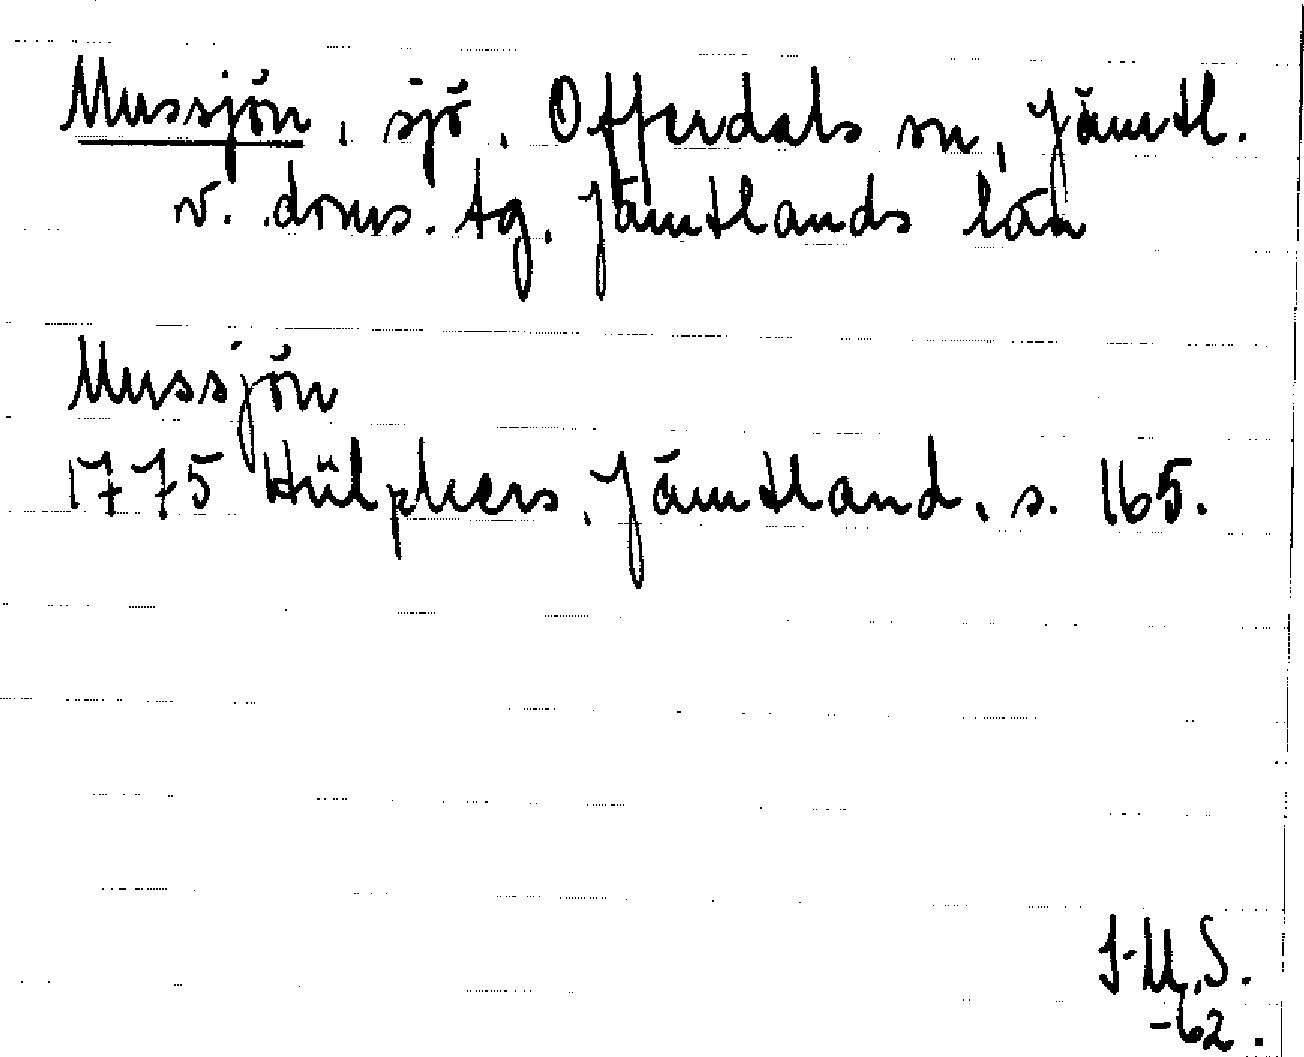 Mussjön, sjö, Offerdals sn, Jämtl.
v. doms. tg, Jämtlands län
Mussjön
1775 Hülphers, Jämtland, s. 165.
-62.